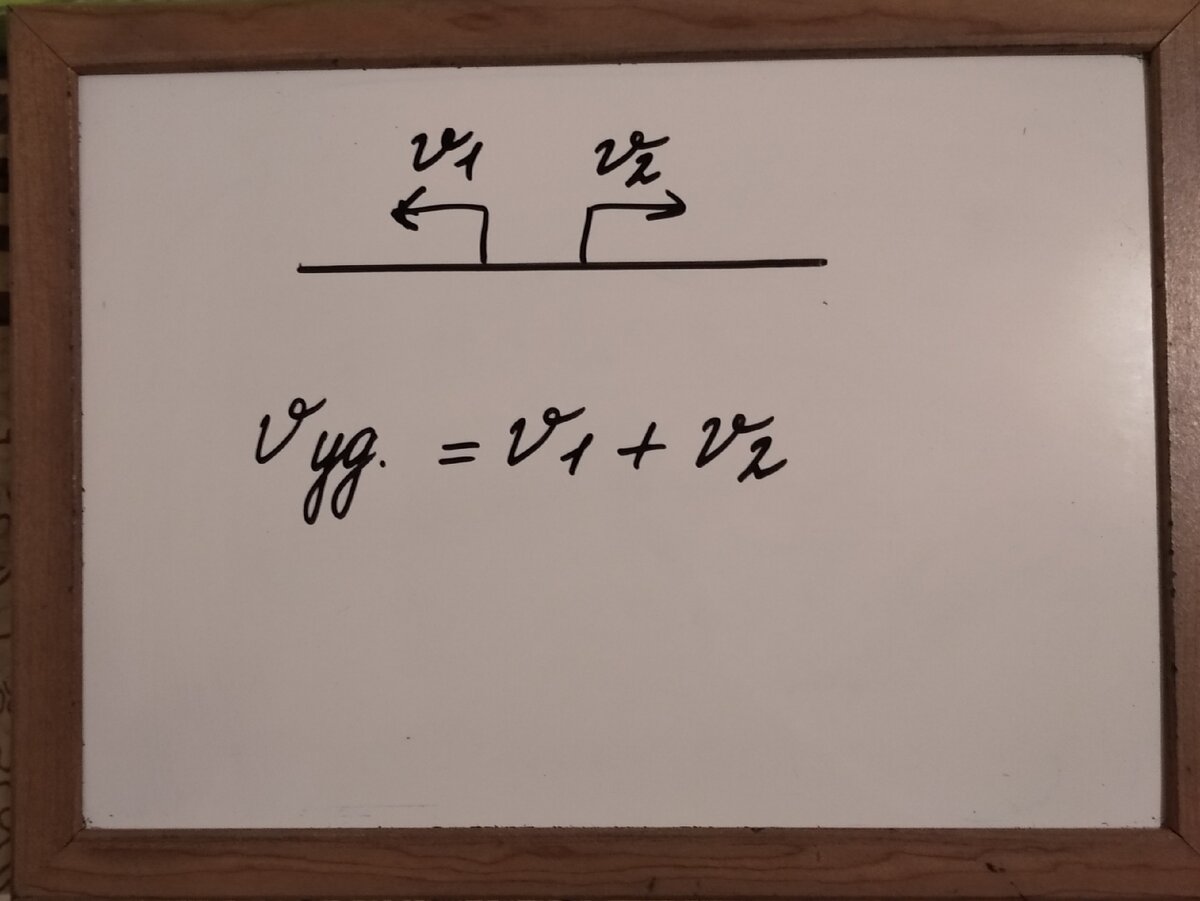 v₁ v₂
v уд. = v₁ + v₂